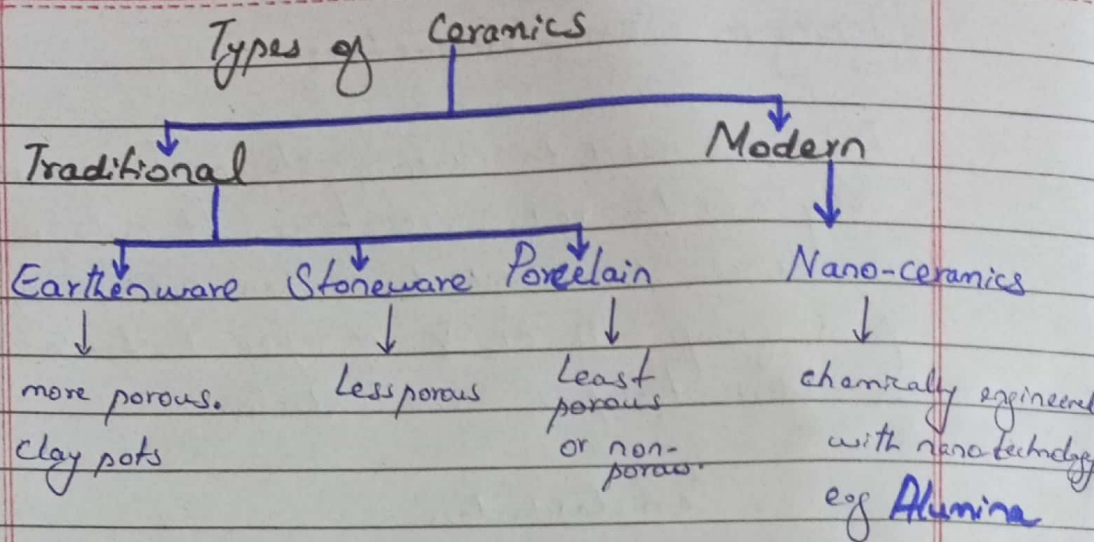 Types of Ceramics
Traditional Modern
Earthenware Stoneware Porcelain Nano-ceramics
more porous. Less porous Least porous or non-porous. chemically engineered
clay pots with nanotechnology
eg Alumina